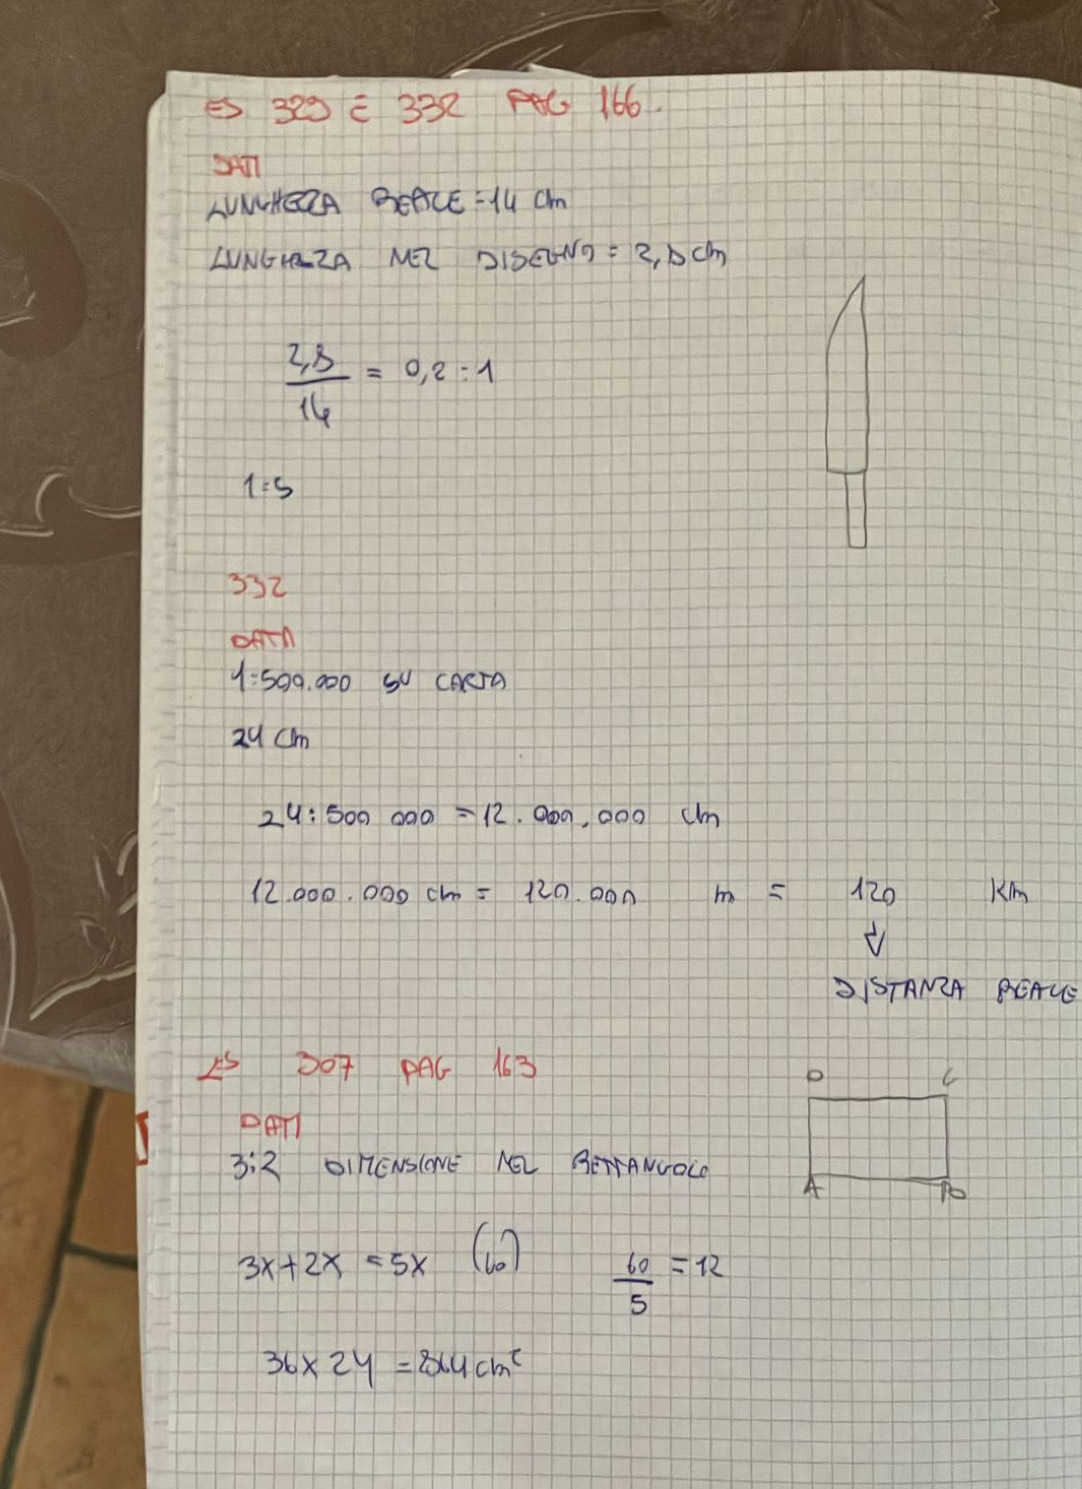 ES 329 E 332 PAG 166.
DATI
LUNGHEZZA REALE = 14 cm
LUNGHEZZA NEL DISEGNO = 2,8 cm
2,8
14
= 0,2 : 1
1:5
332
DATI
1:500.000 SU CARTA
24 cm
24:500 000 = 12.000.000 cm
12.000.000 cm = 120.000 m = 120 Km
DISTANZA REALE
ES 307 PAG 163
D C
DATI
3:2 DIMENSIONE NEL RETTANGOLO
A B
3x+2x = 5x (60)
60
5
= 12
36x24 = 864 cm²